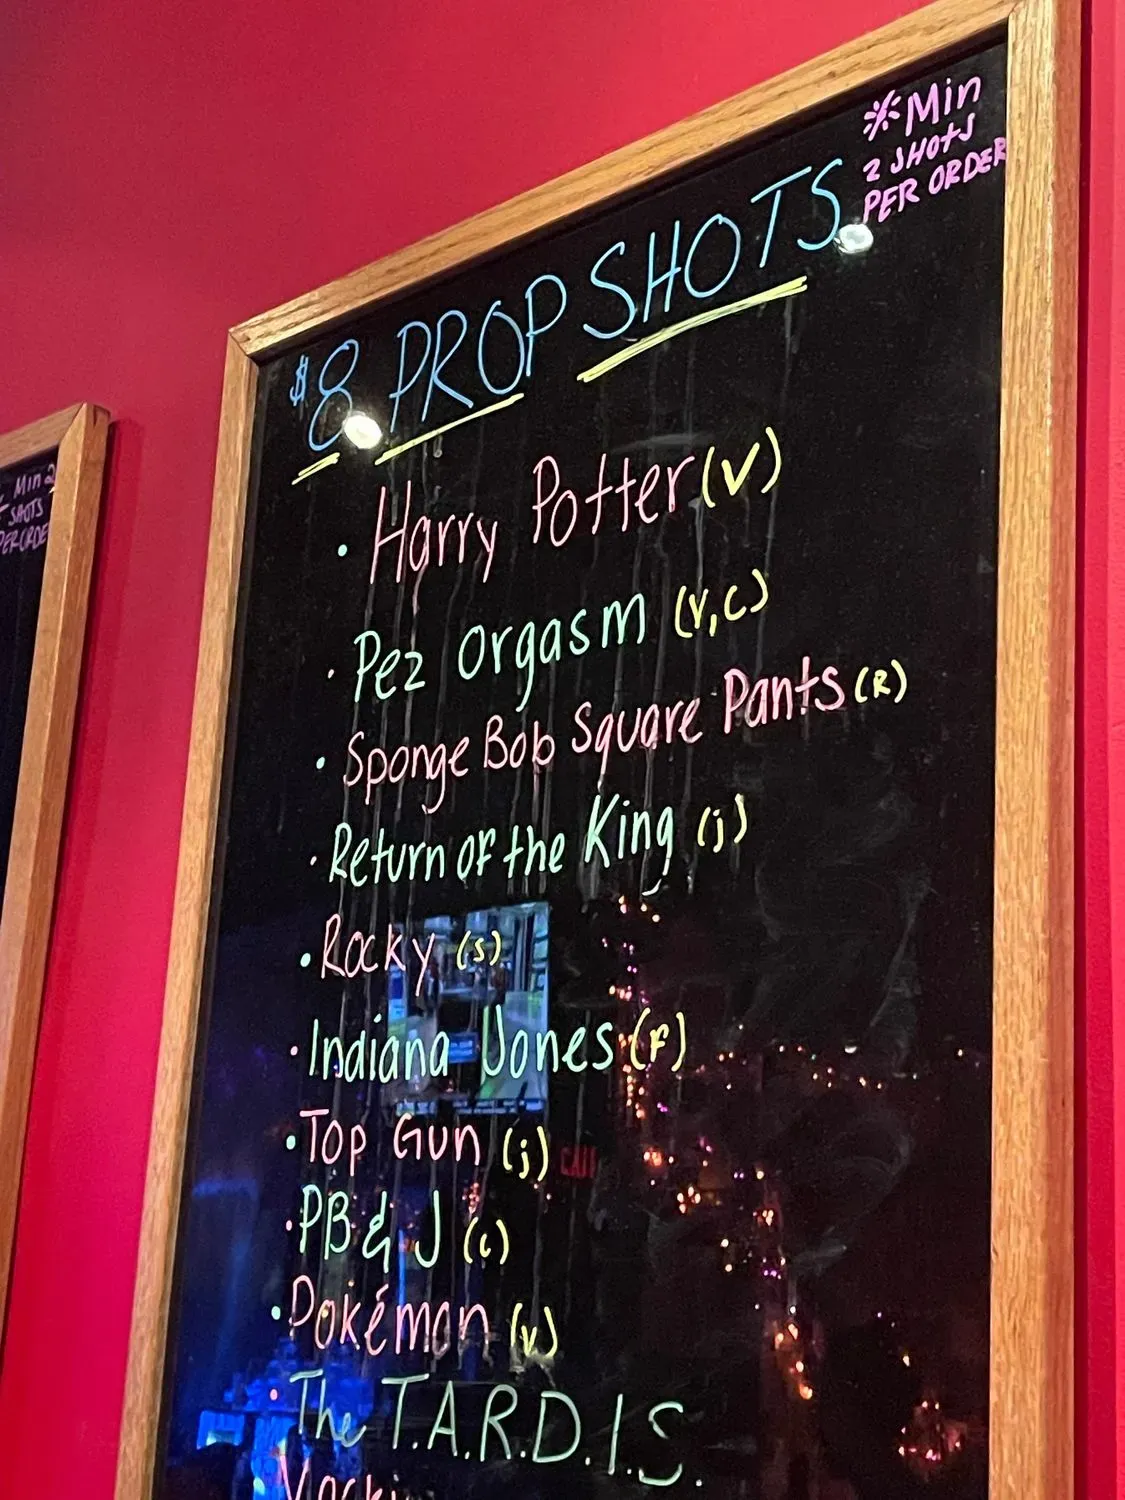 *Min
2 SHOTS
PER ORDER
$8 PROP SHOTS
• Harry Potter (V)
• Pez Orgasm (V,C)
• Sponge Bob Square Pants (R)
• Return of the King (j)
• Rocky (s)
• Indiana Jones (F)
• Top Gun (j)
• PB & J (c)
• Pokémon (v)
• The T.A.R.D.I.S.
Min 2
SHOTS
PER ORDE